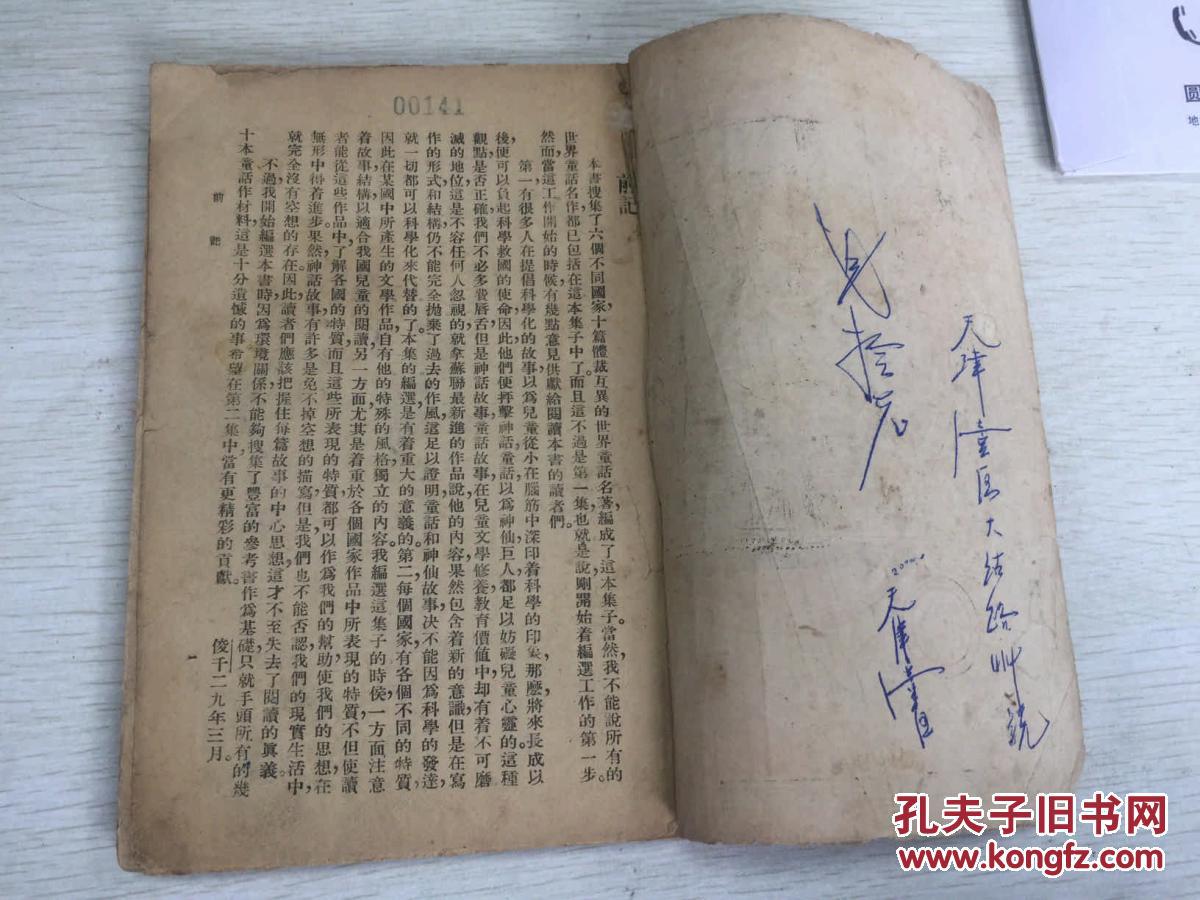 00141
前記
本書搜集了六個不同國家,十篇體裁互異的世界童話名著,編成了這本集子。當然,我不能說所有的
世界童話名作都已包括在這本集子中了,而且這不過是第一集,也就是說剛開始着編選工作的第一步。
然而當這工作開始的時候,有幾點意見供獻給閱讀本書的讀者們。
第一有很多人在提倡科學化的故事,以爲兒童從小在腦筋中深印着科學的印象,那麼將來長成以
後,便可以負起科學救國的使命,因此他們便抨擊神話童話,以爲神仙巨人都足以妨礙兒童心靈的。這種
觀點是否正確,我們不必多費唇舌,但是神話故事,童話故事,在兒童文學修養教育價值中却有着不可磨
滅的地位,這是不容任何人忽視的,就拿蘇聯最新進的作品說,他的內容果然包含着新的意識,但是在寫
作的形式和結構,仍不能完全拋棄了過去的作風,這足以證明童話和神仙故事,決不能因爲科學的發達,
就一切都可以科學化來代替的了。本集的編選,是有着重大的意義的。第二每個國家有各個不同的特質,
因此在某國中所產生的文學作品,自有他的特殊的風格,獨立的內容。我編選這集子的時侯,一方面注意
着故事結構,以適合我國兒童的閱讀,另一方面尤其是着重於各個國家作品中所表現的特質,不但使讀
者能從這些作品中了解各國的特質,而且這些所表現的特質,都可以作爲我們的幫助,使我們的思想,在
無形中得着進步。果然神話故事有許多是免不掉空想的描寫,但是我們也不能否認我們的現實生活中,
就完全沒有空想的存在。因此讀者們應該把握住每篇故事的中心思想,這才不至失去了閱讀的眞義。
不過我開始編選本書時,因爲環境關係,不能夠搜集了豐富的參考書作爲基礎,只就手頭所有的幾
十本童話作材料,這是十分遺憾的事,希望在第二集中,當有更精彩的貢獻。
俊千二九年三月。
前 記
一
天津
大
路
天津
孔夫子旧书网
www.kongfz.com
圆
地